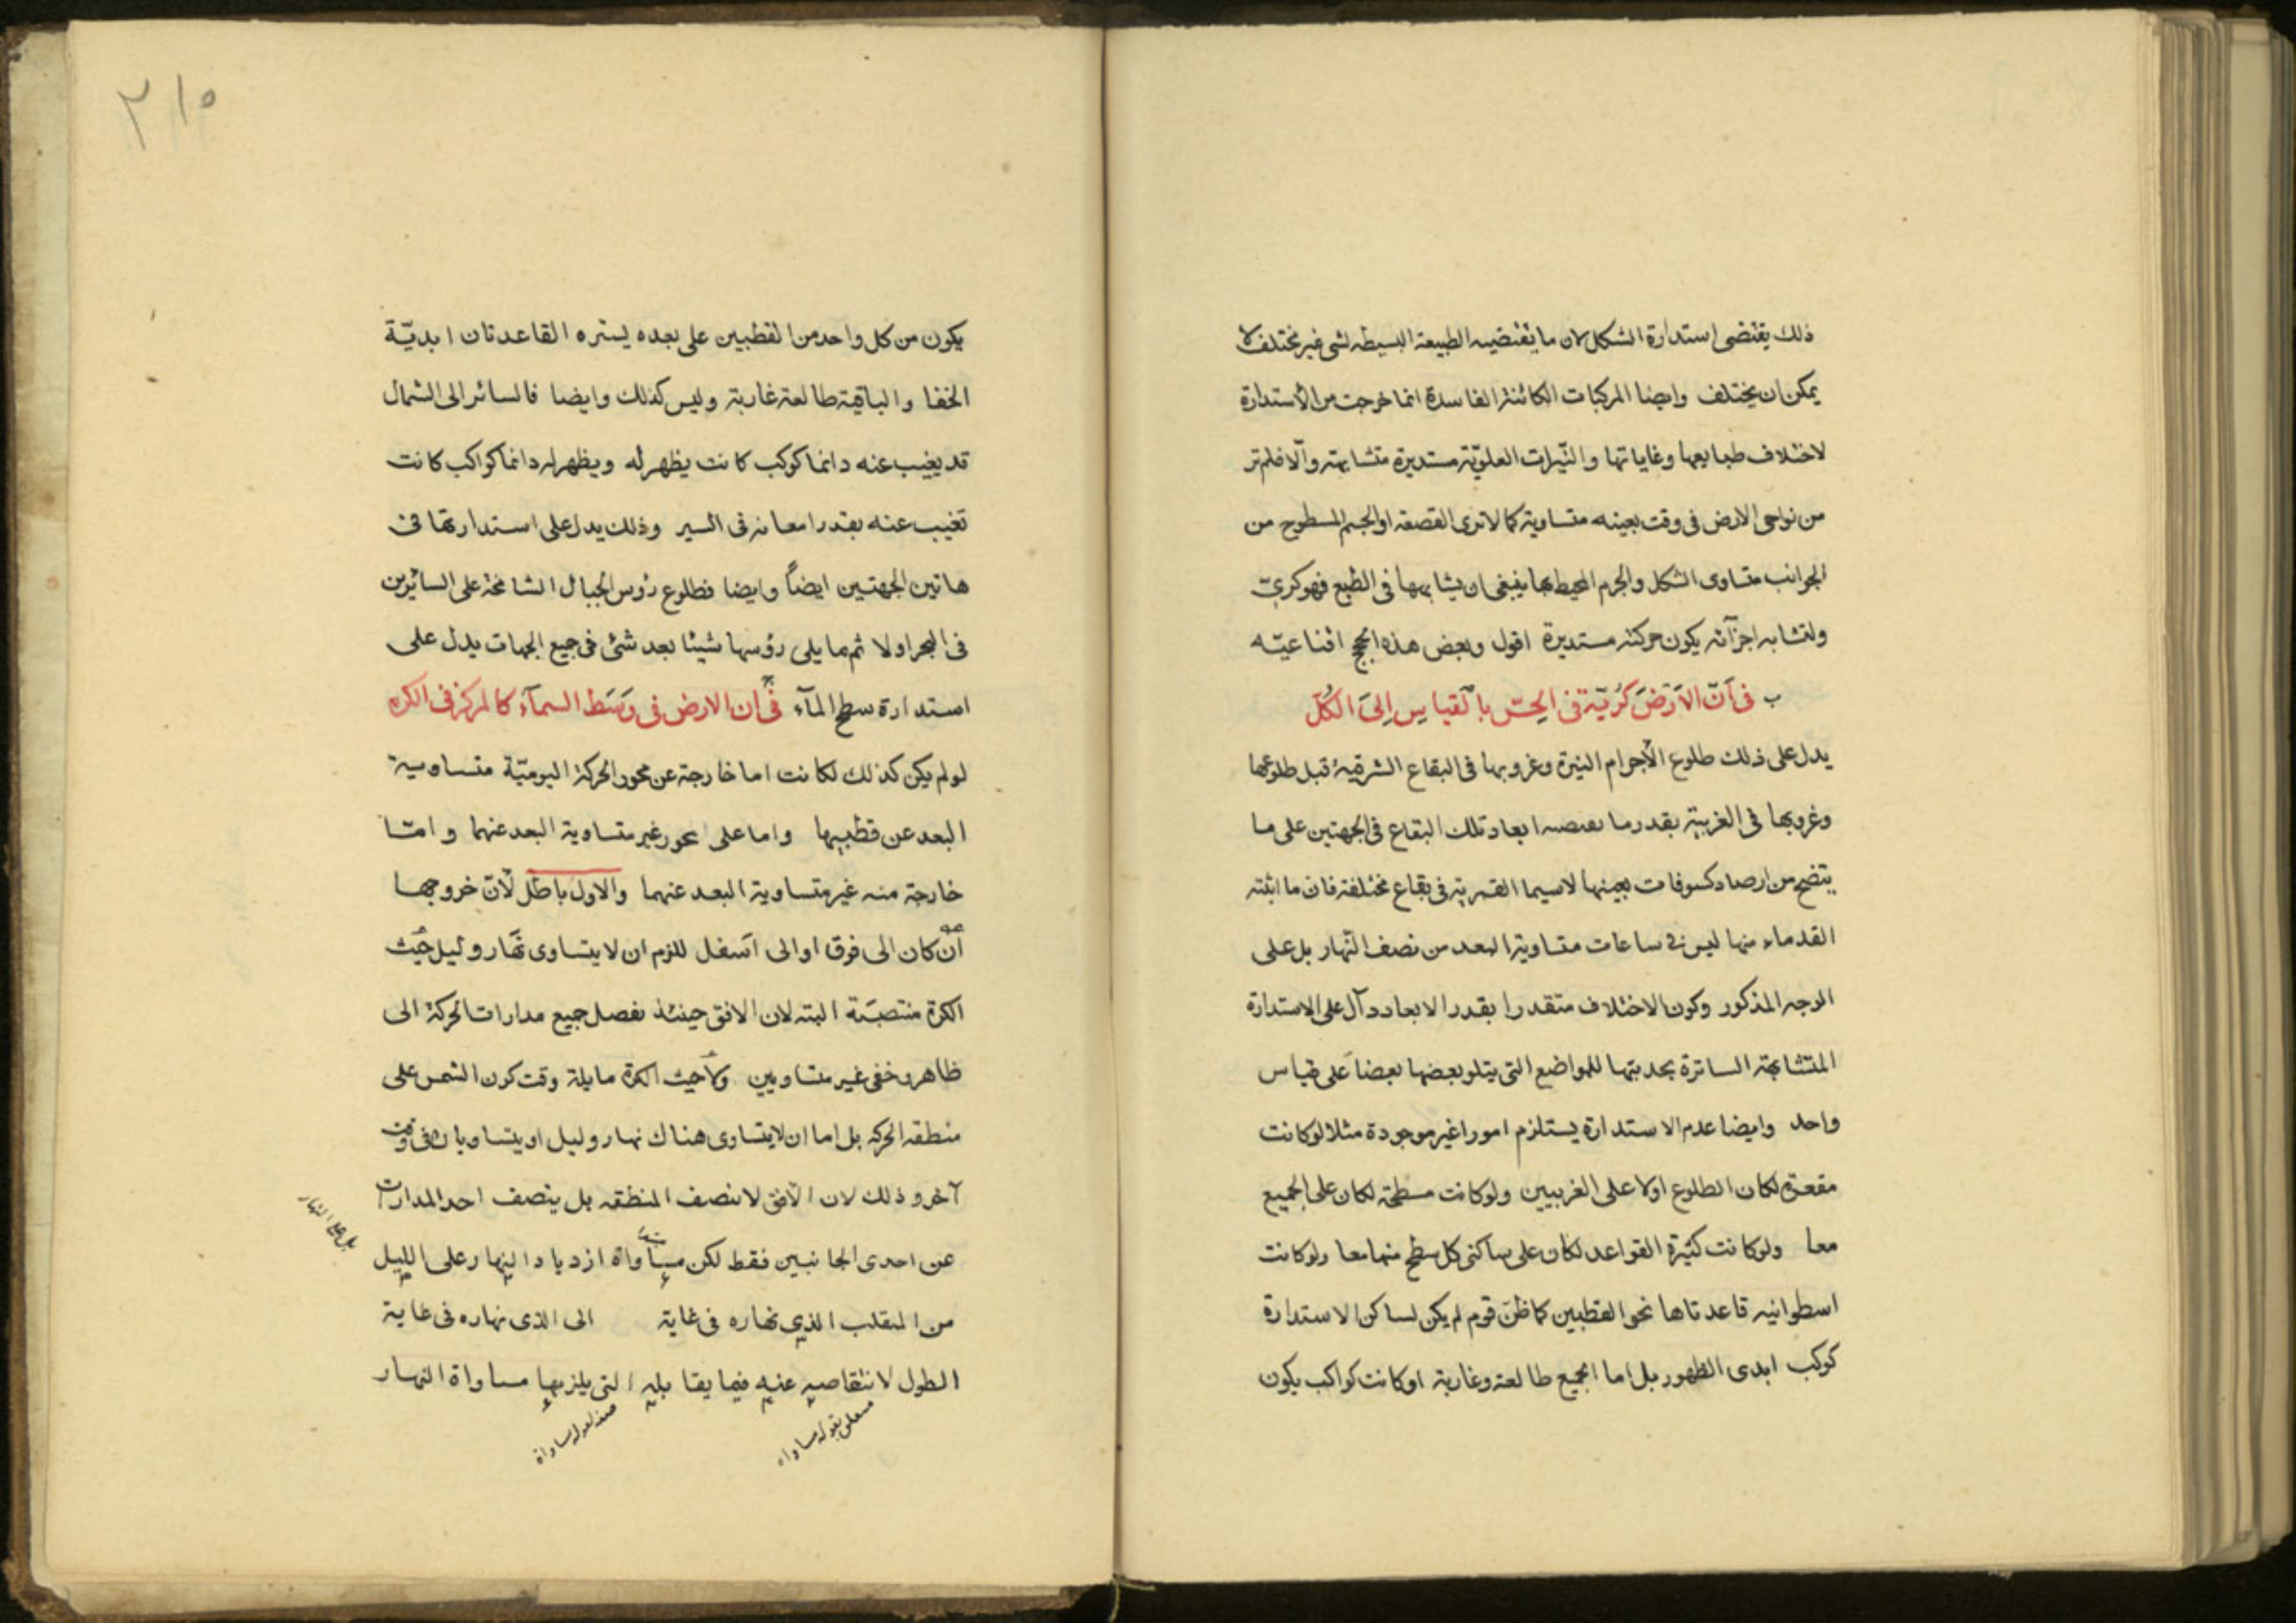 ذلك يقتضى استدارة الشكل لان ما يقتضيه الطبيعة البسيطه لشى غير مختلف لا
يمكن ان يختلف وايضا المركبات الكائنة الفاسدة انما خرجت من الاستدارة
لاختلاف طبايعها وغاياتها والنيّرات العلويّة مستديرة متشابهة والّا فلم تر
من نواحى الارض فى وقت بعينه متساوية كما لا ترى القصعة او الجسم المسطوح من
الجوانب متساوى الشكل والجرم المحيط بها ينبغى ان يشابهها فى الطبع فهو كرىّ
ولتشابه اجزآئه يكون حركته مستديرة اقول وبعض هذه الحجج اقناعيّه
ب فى اَنّ الاَرْضَ كُريّة فى الحِسّ بالقياس اِلىَ الكُلّ
يدل على ذلك طلوع الأجرام النيرة وغروبها فى البقاع الشرقية قبل طلوعها
وغروبها فى الغربية بقدر ما ابعاد تلك البقاع فى الجهتين على ما
يتضح من ارصاد كسوفات بعينها لاسيما القمرية فى بقاع مختلفة فان ما اثبته
القدماء منها ليس فى ساعات متساوية البعد من نصف النّهار بل على
الوجه المذكور وكون الاختلاف متقدرا بقدر الابعاد دآل على الاستدارة
المتشابهة الساترة بحدبتها للمواضع التى يتلو بعضها بعضاً على قياس
واحد وايضا عدم الاستدارة يستلزم امورا غير موجودة مثلا لو كانت
مقعرة لكان الطلوع اولا على الغربيين ولو كانت مسطحة لكان على الجميع
معا ولو كانت كثيرة القواعد لكان على ساكنى كل سطح منها معا ولو كانت
اسطوانيه قاعدتاها نحو القطبين كما ظنّ قوم لم يكن لساكن الاستدارة
كوكب ابدى الظهور بل اما الجميع طالعة وغاربة او كانت كواكب يكون
٢١٥
يكون من كل واحد من القطبين على بعده يستره القاعدتان ابديّة
الخفا والباقية طالعة غاربة وليس كذلك وايضا فالسائر الى الشمال
قد يغيب عنه دائما كوكب كانت يظهر له ويظهر له دائما كواكب كانت
تغيب عنه بقدر امعانه فى السير وذلك يدل على استدارتها فى
هاتين الجهتين ايضاً وايضا فطلوع رؤس الجبال الشامخة على السائرين
فى البحر اولا ثم ما يلى رؤسها شيئا بعد شئ فى جميع الجهات يدل على
استدارة سطح المآء ج فى ان الارض فى وَسَط السمآء كالمركز فى الكره
لو لم يكن كذلك لكانت اما خارجة عن محور الحركة اليوميّة متساوية
البعد عن قطبيها واما على محور غير متساوية البعد عنهما وامّا
خارجة منه غير متساوية البعد عنهما والاول باطل لأن خروجها
ان كان الى فوق او الى اسفل للزم ان لا يتساوى نهار وليل حيث
الكرة منتصبَة البته لان الافق حينئذ يفصل جميع مدارات الحركة الى
ظاهر وخفى غير متساويين ولا حيث الكرة مايلة وقت كون الشمس على
منطقة الحركه بل اما ان لا يتساوى هناك نهار وليل او يتساويان فى وقت
آخر وذلك لان الافق لا ينصف المنطقه بل ينصف احد المدارات
عن احدى الجانبين فقط لكن مساواة ازدياد النهار على الليل
من المنقلب الذى نهاره فى غاية الى الذى نهاره فى غاية
الطول لانتقاصه عنه فيما يقابله التى يلزمها مساواة النهار
متعلق بقوله مساواه
صفة لقوله مساواة